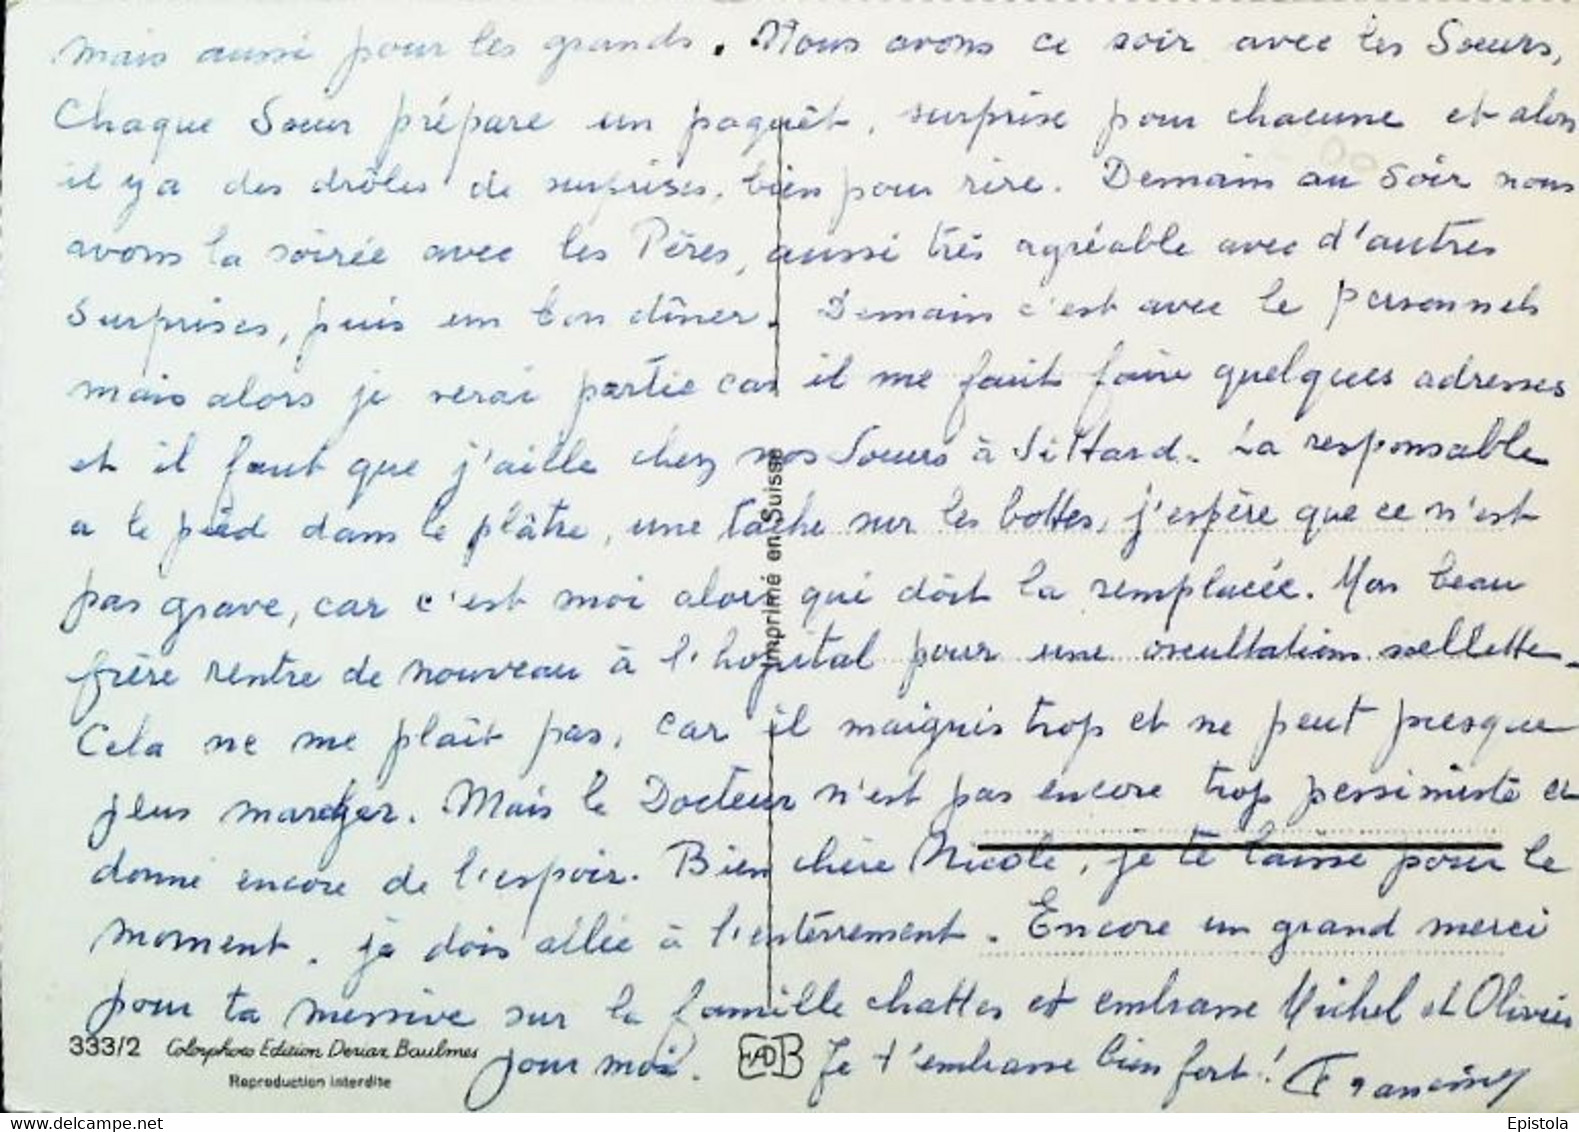 mais aussi pour les grands. Nous avons ce soir avec les Sœurs,
Chaque Sœur prépare un paquêt, surprise pour chacune et alors
il y a des drôles de surprises, bien pour rire. Demain au Soir nous
avons la soirée avec les Pères, aussi très agréable avec d'autres
surprises, puis un bon dîner. Demain c'est avec le personnels
mais alors je serai partie car il me faut faire quelques adresses
et il faut que j'aille chez nos Sœurs à Sittard. La responsable
a le pied dans le plâtre, une tâche sur les bottes, j'espère que ce n'est
pas grave, car c'est moi alors qui dôit la remplacée. Mon beau
frère rentre de nouveau à l'hopital pour une
Cela ne me plaît pas, car il maigris trop et ne peut presque
plus manger. Mais le Docteur n'est pas encore trop pessimiste et
donne encore de l'espoir. Bien chère Nicole, je te laisse pour le
moment. je dois allée à l'entèrrement. Encore un grand merci
pour ta messive sur la famille chattes et embrasse Michel et Olivier
pour moi. Je t'embrasse bien fort! Francine
Imprimé en Suisse
333/2 Colorphoto Edition Deriaz Baulmes
Reproduction interdite
Epistola